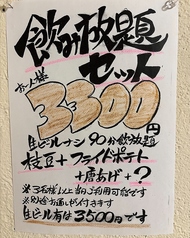 飲み放題
セット
お一人様
3300円
生ビールナシ 90分飲放題
枝豆+フライドポテト
+唐あげ+?
※3名様以上当日ご利用可能です
※別途お通しが付きます
生ビール有は3500円です